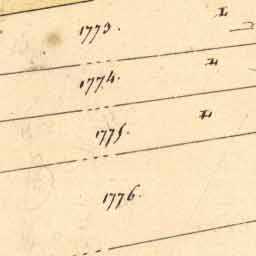 1773.
L
1774.
L
1775.
L
1776.